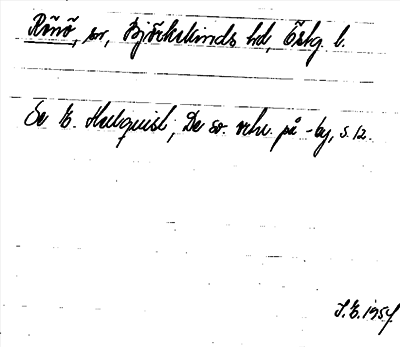 Rönö, sn, Björkekinds hd, Östg. l.
Se E. Hellquist, De sv. ortn. på -by, s. 12.
S.E. 1954.